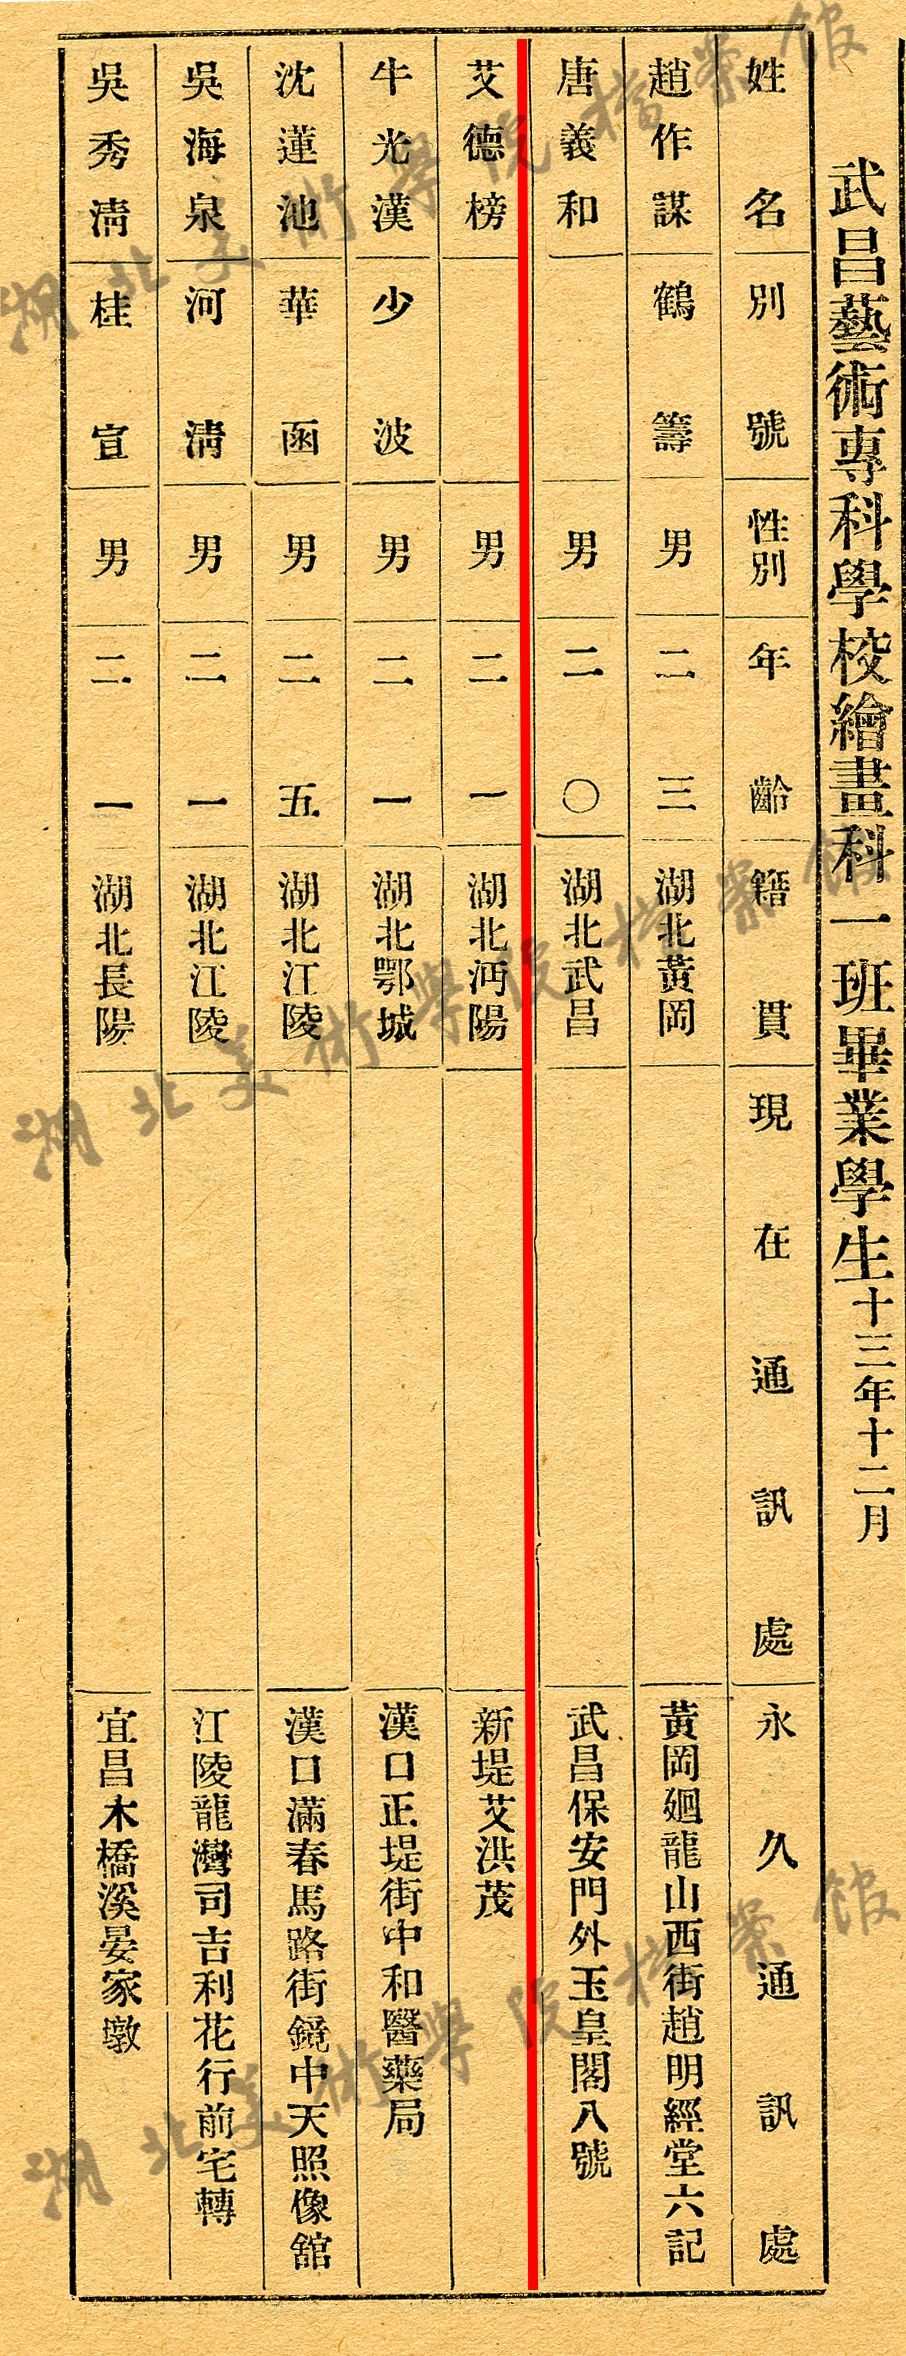 武昌藝術專科學校繪畫科一班畢業學生十三年十二月
姓名 別號 性別 年齡 籍貫 現在通訊處 永久通訊處
趙作謀 鶴籌 男 二三 湖北黃岡 黃岡廻龍山西街趙明經堂六記
唐義和 男 二〇 湖北武昌 武昌保安門外玉皇閣八號
艾德榜 男 二一 湖北沔陽 新堤艾洪茂
牛光漢 少波 男 二一 湖北鄂城 漢口正堤街中和醫藥局
沈蓮池 華函 男 二五 湖北江陵 漢口滿春馬路街鏡中天照像舘
吳海泉 河清 男 二一 湖北江陵 江陵龍灣司吉利花行前宅轉
吳秀清 桂宣 男 二一 湖北長陽 宜昌木橋溪晏家墩
湖北美術學院檔案館
湖北美術學院檔案館
湖北美術學院檔案館